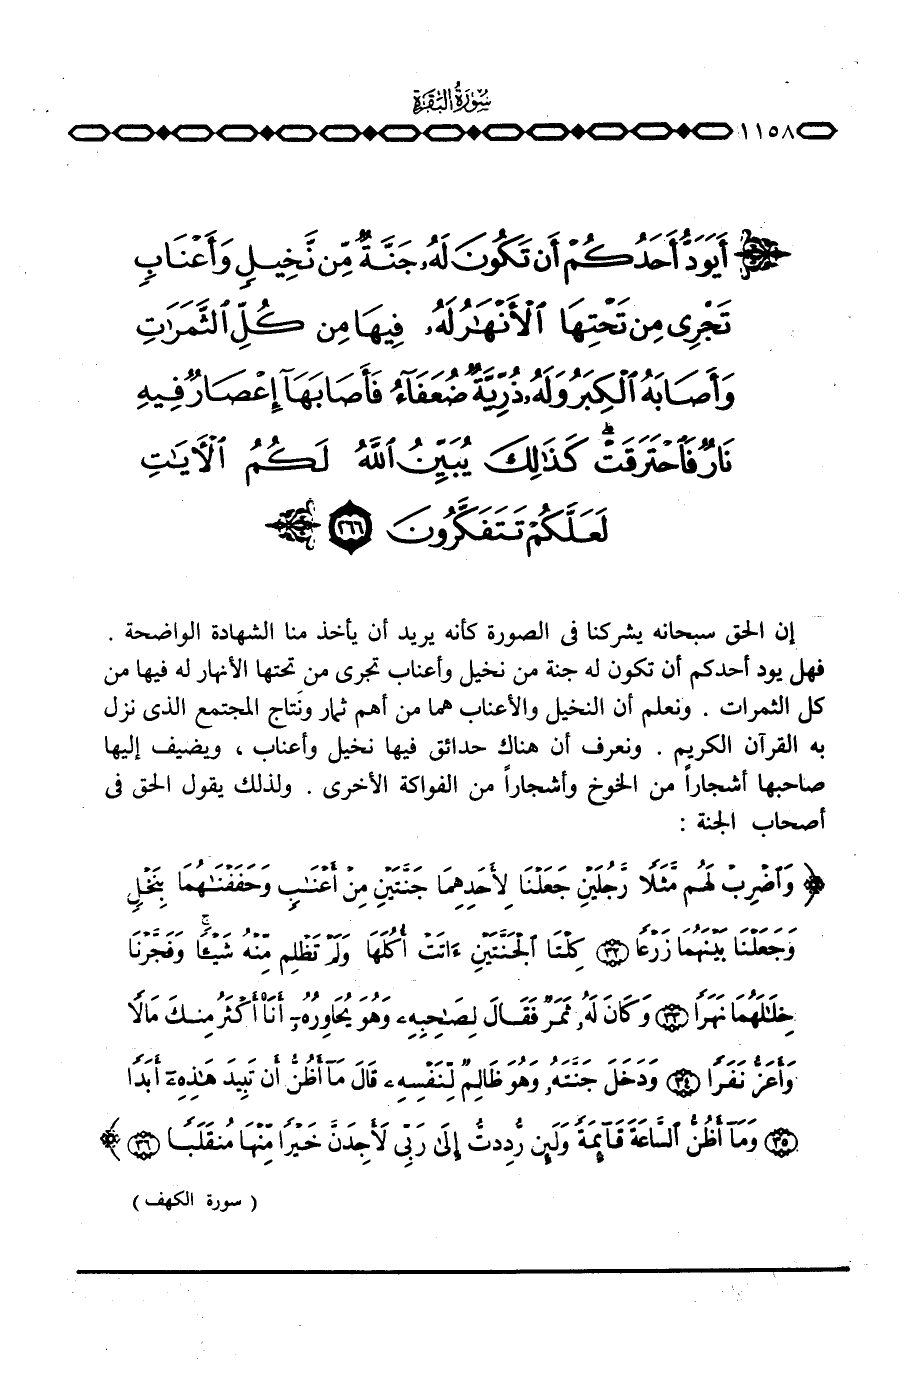 سُورَةُ البَقَرَةِ
١١٥٨
أَيَوَدُّ أَحَدُكُمْ أَن تَكُونَ لَهُۥ جَنَّةٌ مِّن نَّخِيلٍ وَأَعْنَابٍ
تَجْرِى مِن تَحْتِهَا ٱلْأَنْهَٰرُ لَهُۥ فِيهَا مِن كُلِّ ٱلثَّمَرَٰتِ
وَأَصَابَهُ ٱلْكِبَرُ وَلَهُۥ ذُرِّيَّةٌ ضُعَفَآءُ فَأَصَابَهَآ إِعْصَارٌ فِيهِ
نَارٌ فَٱحْتَرَقَتْ ۗ كَذَٰلِكَ يُبَيِّنُ ٱللَّهُ لَكُمُ ٱلْءَايَٰتِ
لَعَلَّكُمْ تَتَفَكَّرُونَ ٢٦٦
إن الحق سبحانه يشركنا فى الصورة كأنه يريد أن يأخذ منا الشهادة الواضحة .
فهل يود أحدكم أن تكون له جنة من نخيل وأعناب تجرى من تحتها الأنهار له فيها من
كل الثمرات . ونعلم أن النخيل والأعناب هما من أهم ثمار ونَتاج المجتمع الذى نزل
به القرآن الكريم . ونعرف أن هناك حدائق فيها نخيل وأعناب ، ويضيف إليها
صاحبها أشجاراً من الخوخ وأشجاراً من الفواكة الأخرى . ولذلك يقول الحق فى
أصحاب الجنة :
﴿ وَٱضْرِبْ لَهُم مَّثَلًا رَّجُلَيْنِ جَعَلْنَا لِأَحَدِهِمَا جَنَّتَيْنِ مِنْ أَعْنَٰبٍ وَحَفَفْنَٰهُمَا بِنَخْلٍ
وَجَعَلْنَا بَيْنَهُمَا زَرْعًا ٣٢ كِلْتَا ٱلْجَنَّتَيْنِ ءَاتَتْ أُكُلَهَا وَلَمْ تَظْلِم مِّنْهُ شَيْـًٔا ۚ وَفَجَّرْنَا
خِلَٰلَهُمَا نَهَرًا ٣٣ وَكَانَ لَهُۥ ثَمَرٌ فَقَالَ لِصَٰحِبِهِۦ وَهُوَ يُحَاوِرُهُۥٓ أَنَا۠ أَكْثَرُ مِنكَ مَالًا
وَأَعَزُّ نَفَرًا ٣٤ وَدَخَلَ جَنَّتَهُۥ وَهُوَ ظَالِمٌ لِّنَفْسِهِۦ قَالَ مَآ أَظُنُّ أَن تَبِيدَ هَٰذِهِۦٓ أَبَدًا
٣٥ وَمَآ أَظُنُّ ٱلسَّاعَةَ قَآئِمَةً وَلَئِن رُّدِدتُّ إِلَىٰ رَبِّى لَأَجِدَنَّ خَيْرًا مِّنْهَا مُنقَلَبًا ٣٦ ﴾
( سورة الكهف )